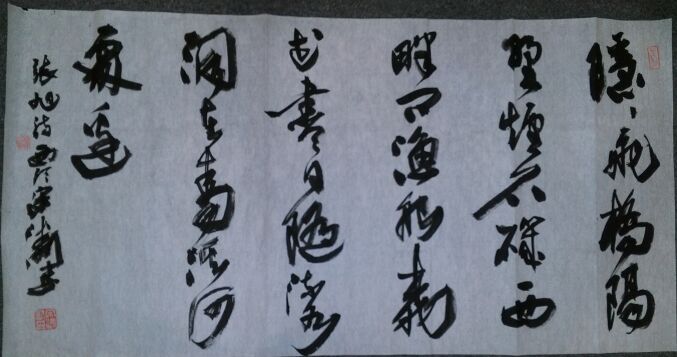 隱〻飛橋隔
野煙石磯西
畔问漁船桃
花盡日隨流水
洞在清溪何
處邊
张旭诗